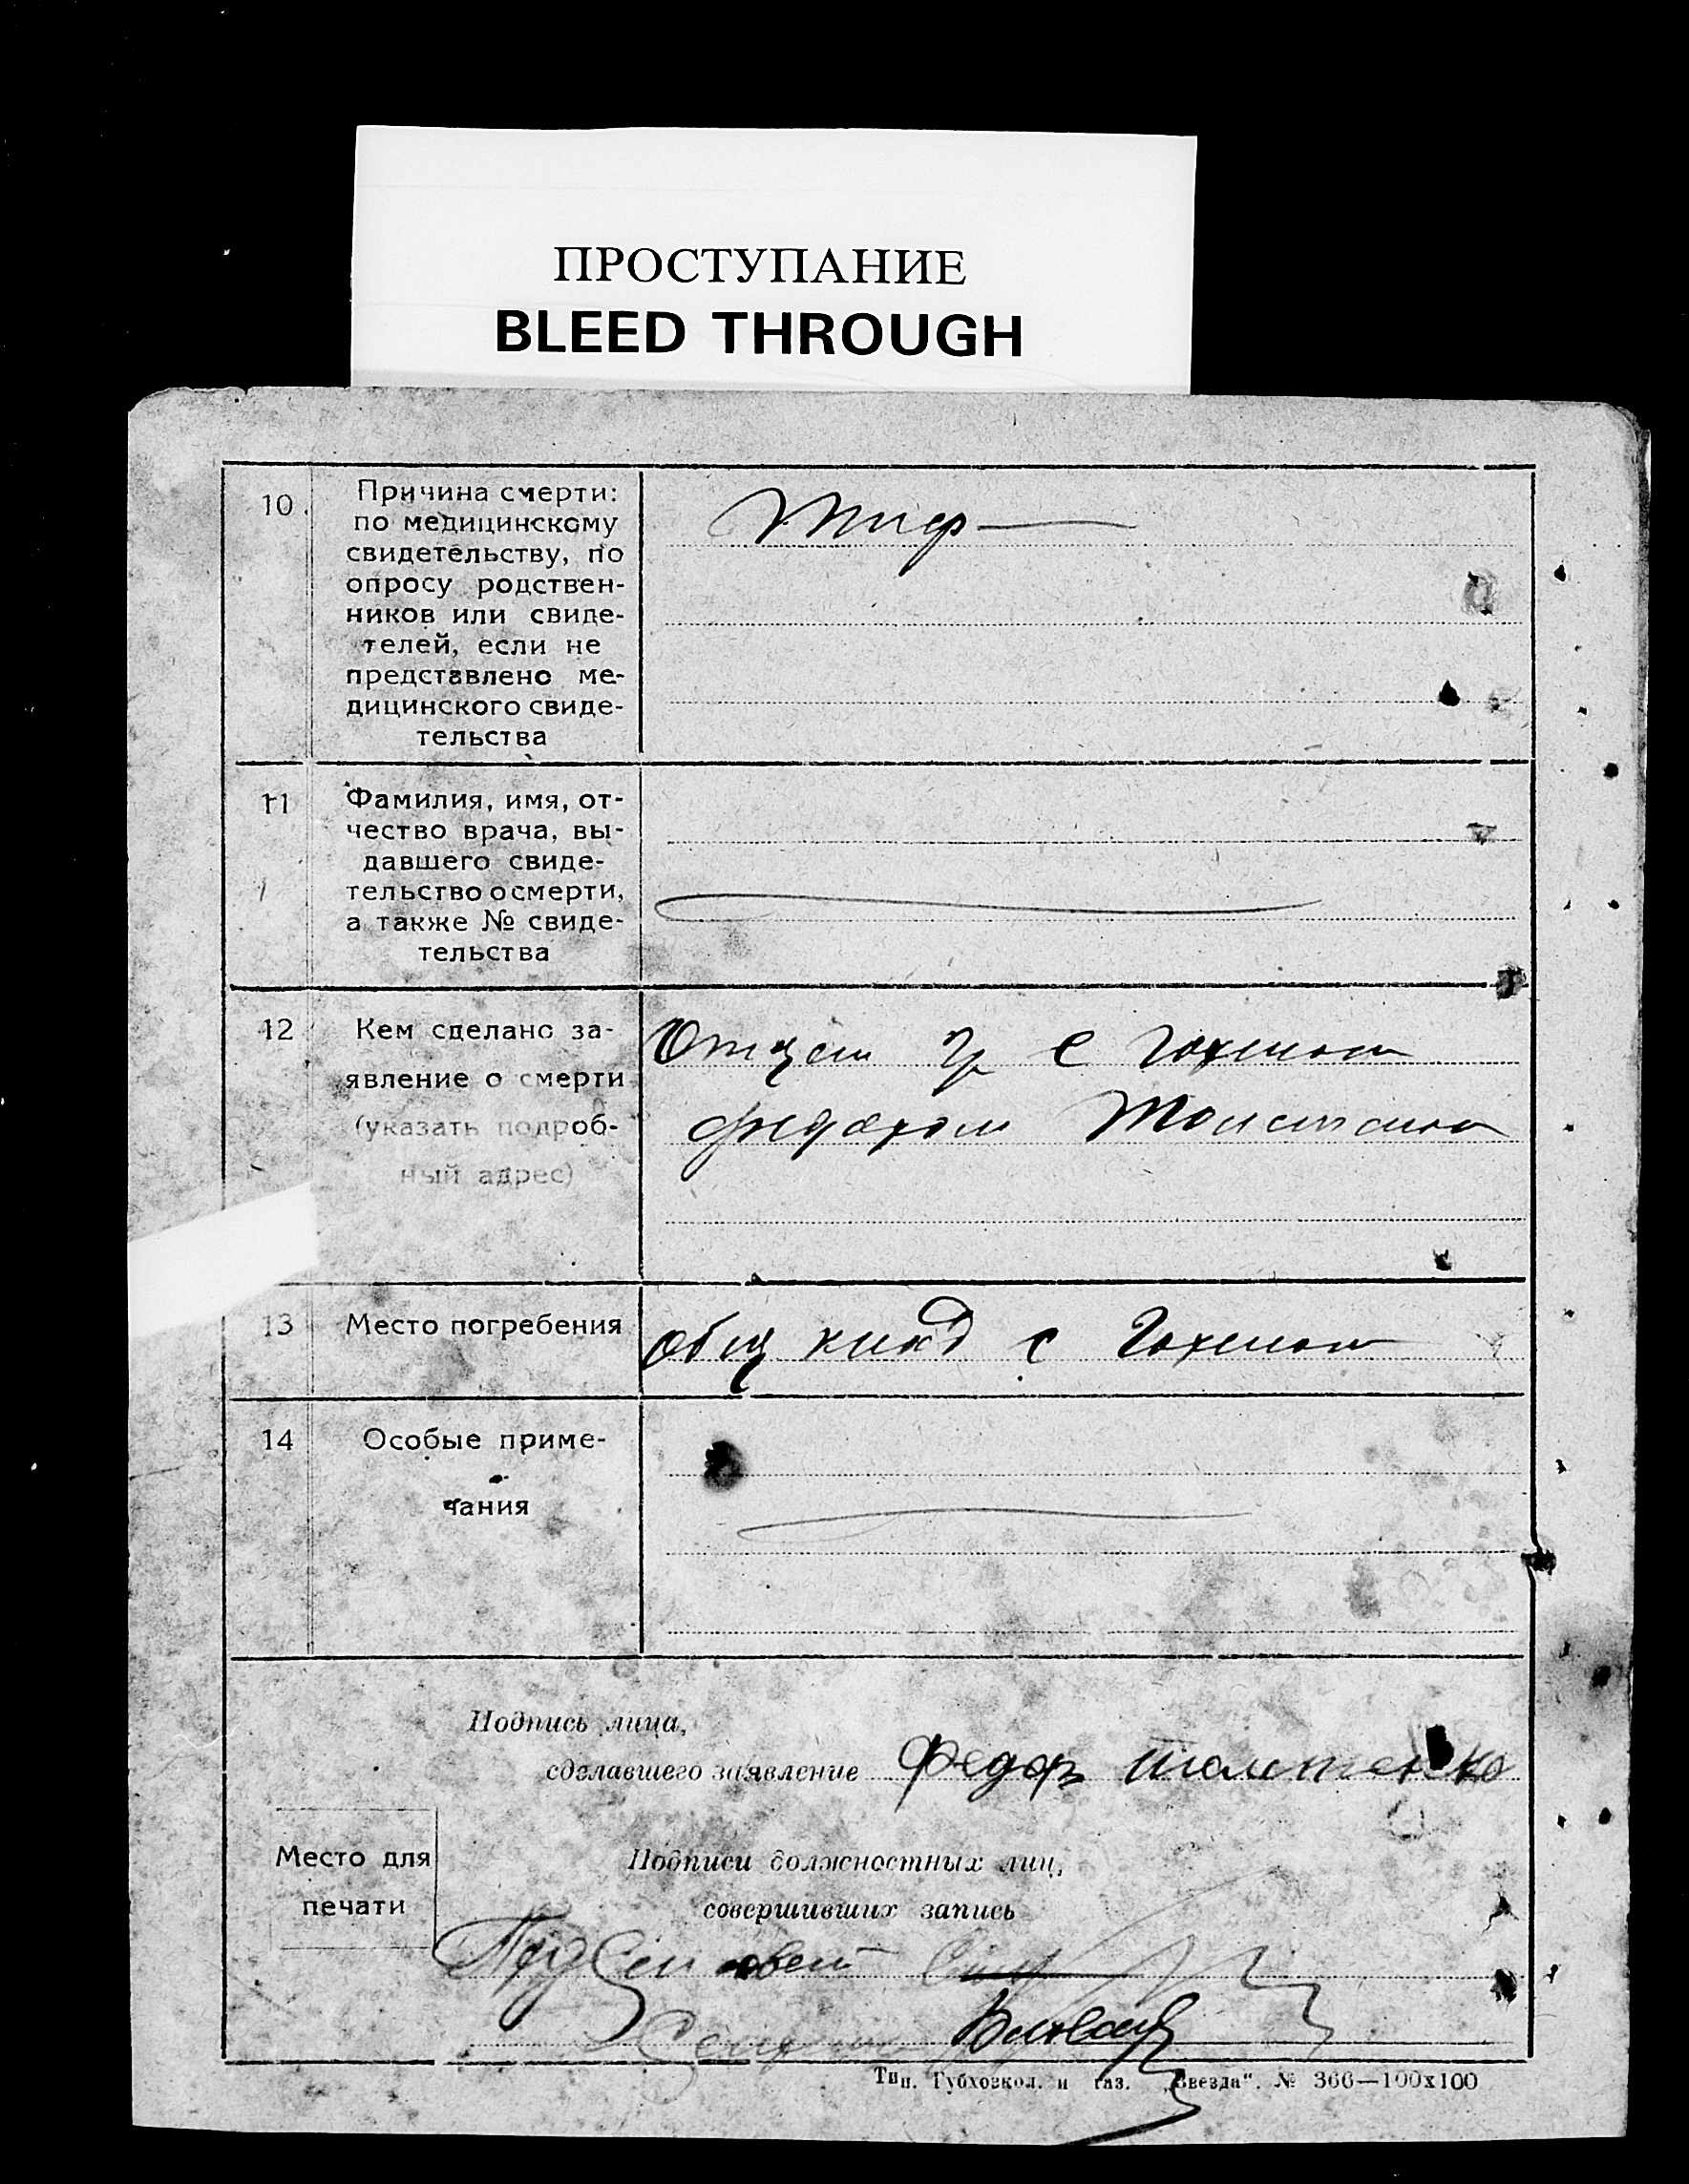 ПРОСТУПАНИЕ
BLEED THROUGH
10.
Причина смерти:
по медицинскому
свидетельству, по
опросу родствен-
ников или свиде-
телей, если не
представлено ме-
дицинского свиде-
тельства
Тиф
11
Фамилия, имя, от-
чество врача, вы-
давшего свиде-
тельство о смерти,
а также № свиде-
тельства
12
Кем сделано за-
явление о смерти
(указать подроб-
ный адрес)
Отцем гр с
13
Место погребения
общ клад с
14
Особые приме-
чания
Подпись лица,
сделавшего заявление Федор
Место для
печати
Подписи должностных лиц,
совершивших запись
Пред
Тип. Губхозкол. и газ. „Звезда“. № 366—100х100